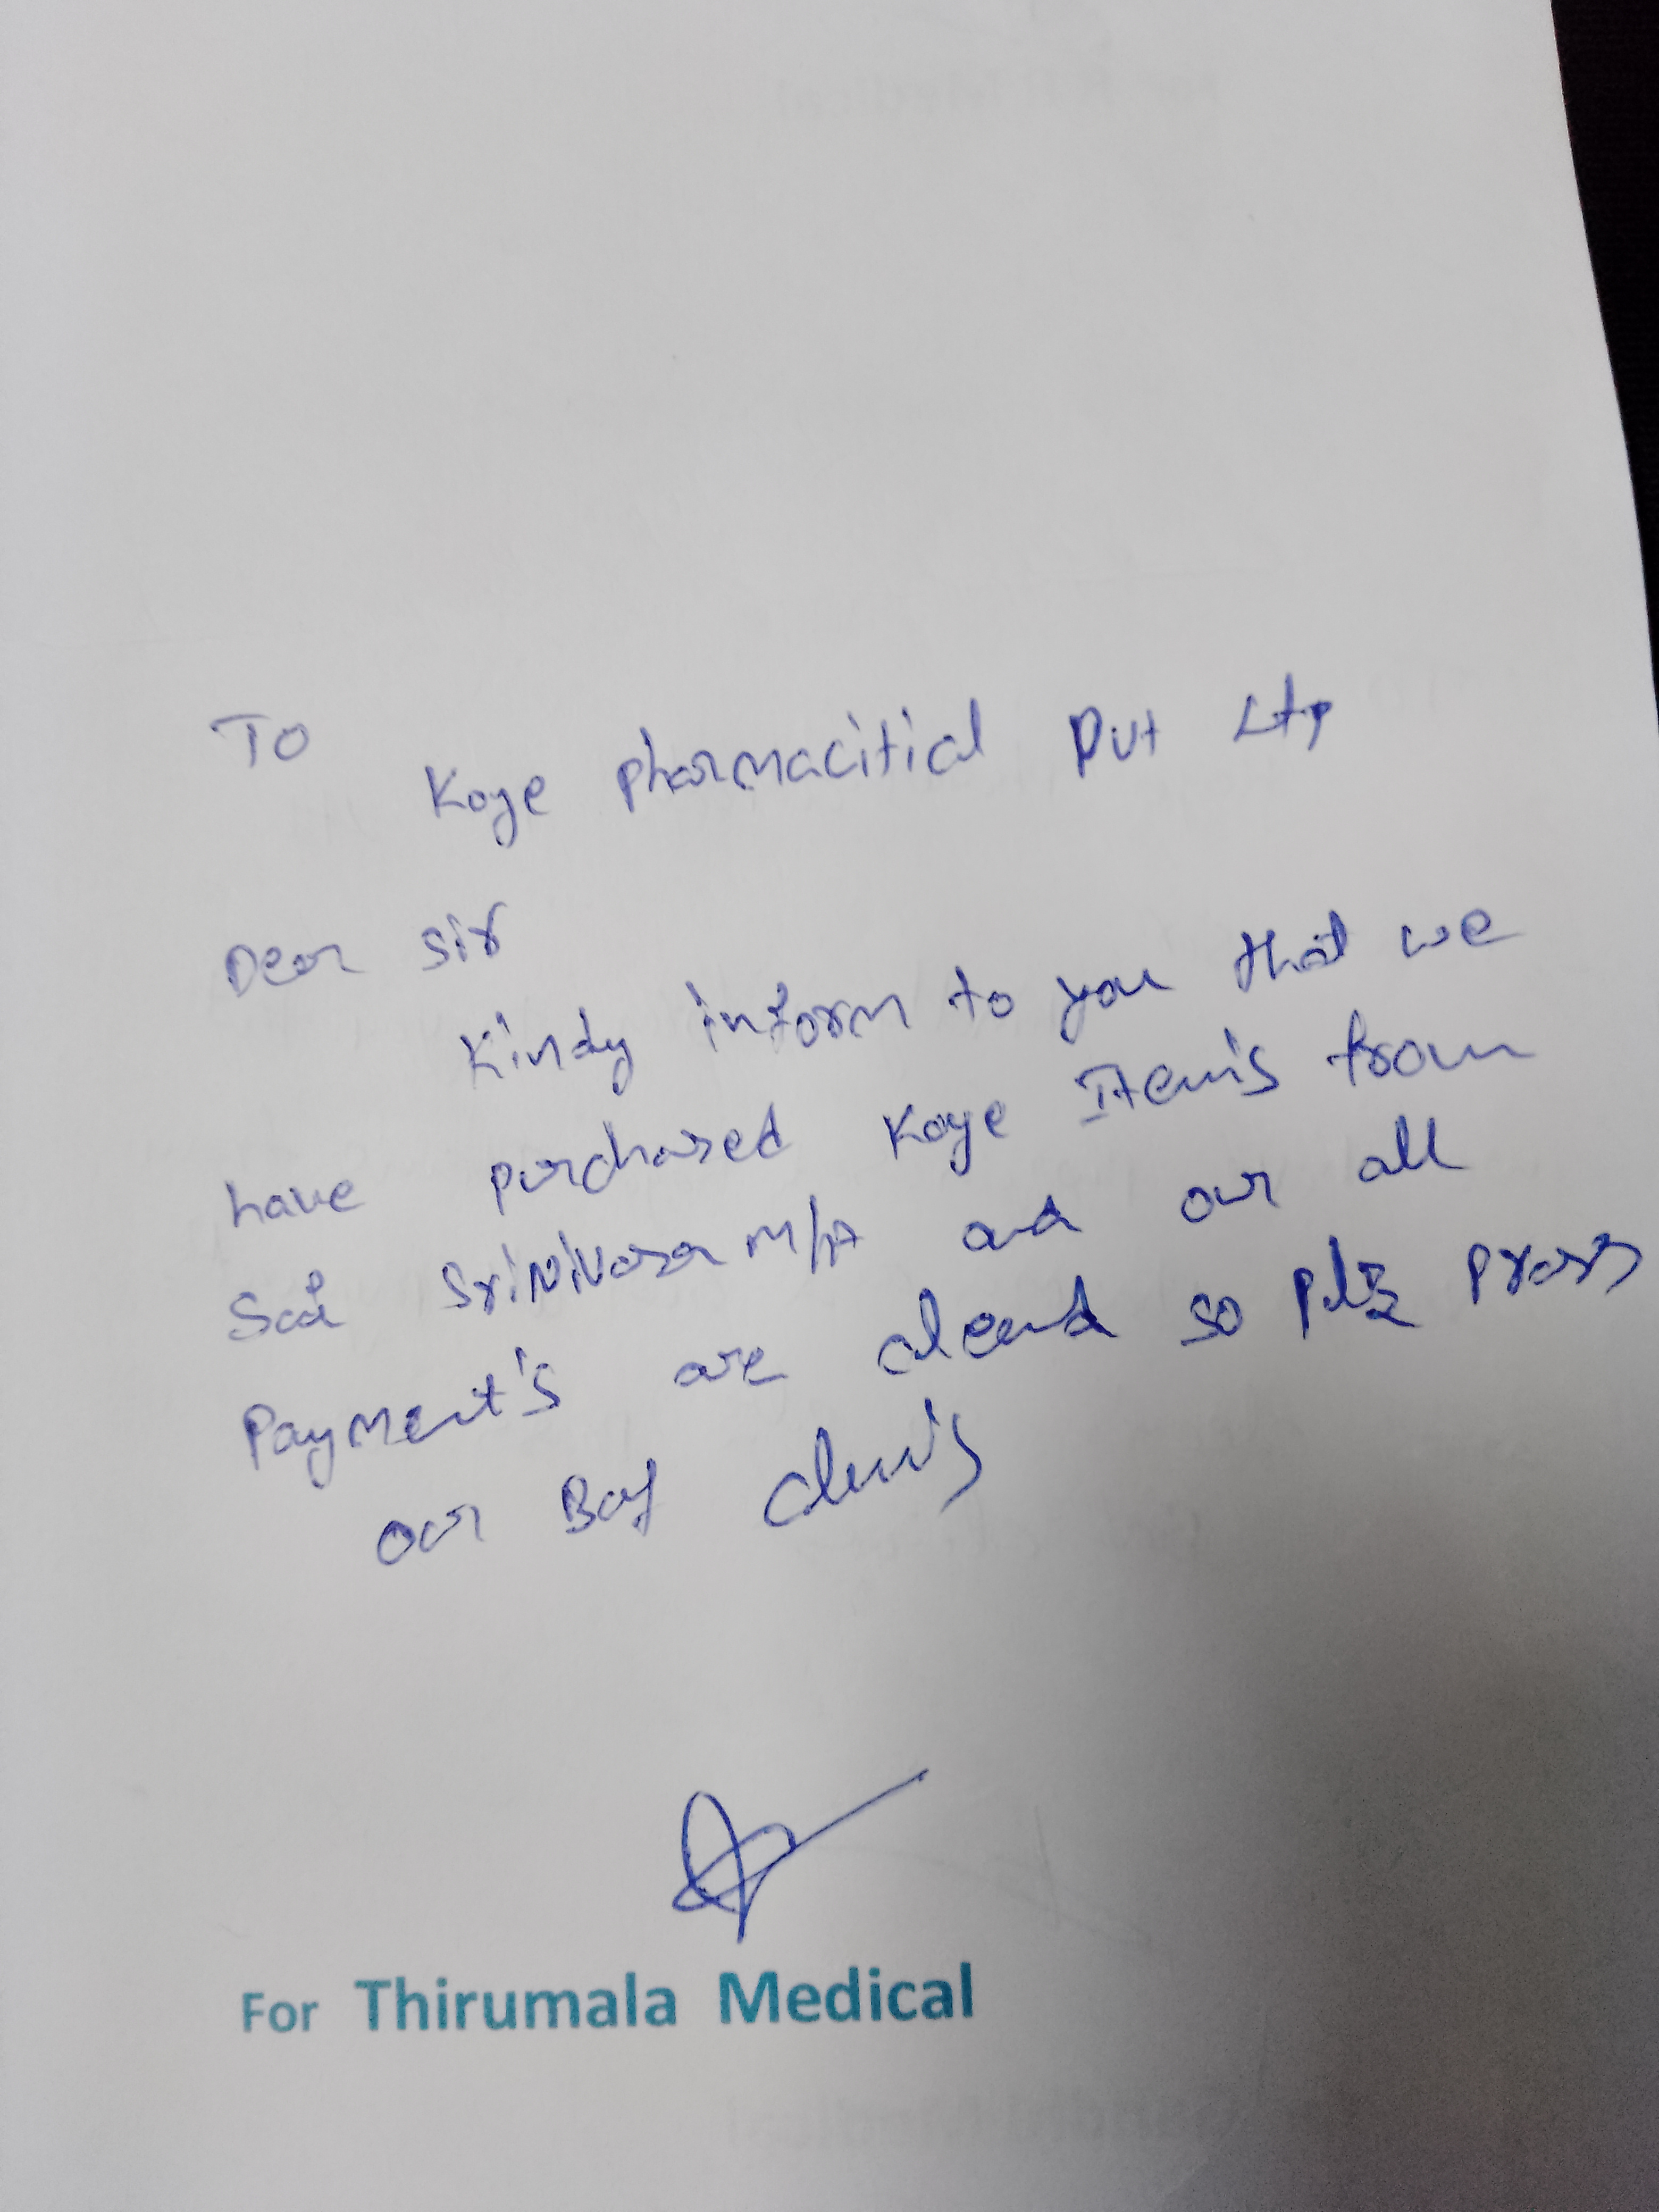 To
Koye pharmacitical Pvt Ltd
Dear Sir
Kindy inform to you that we
have purchased Koye Item's from
Sai Srinivasa M/A and our all
Payment's are cleard so Plz
our claim's
For Thirumala Medical